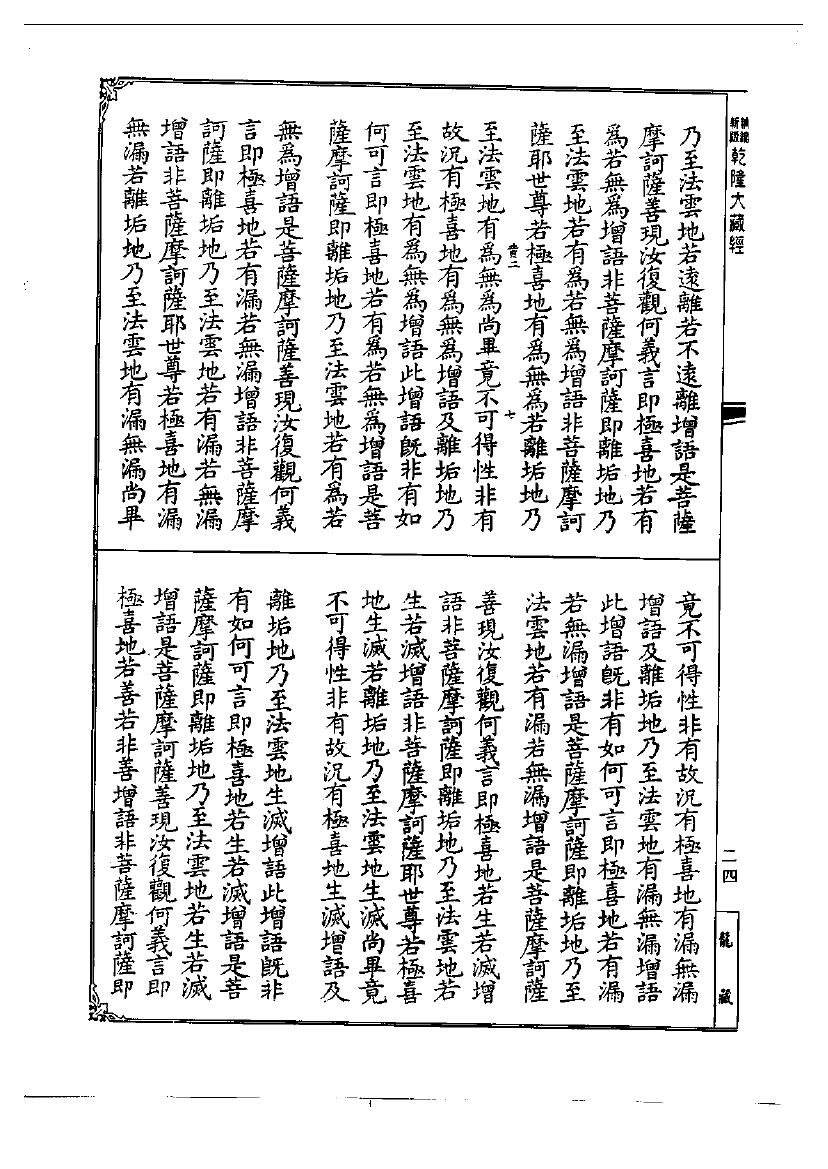 新編縮版
乾隆大藏經
乃至法雲地若遠離若不遠離增語是菩薩
摩訶薩善現汝復觀何義言即極喜地若有
為若無為增語非菩薩摩訶薩即離垢地乃
至法雲地若有為若無為增語非菩薩摩訶
薩耶世尊若極喜地有為無為若離垢地乃
黃二
七
至法雲地有為無為尚畢竟不可得性非有
故況有極喜地有為無為增語及離垢地乃
至法雲地有為無為增語此增語既非有如
何可言即極喜地若有為若無為增語是菩
薩摩訶薩即離垢地乃至法雲地若有為若
無為增語是菩薩摩訶薩善現汝復觀何義
言即極喜地若有漏若無漏增語非菩薩摩
訶薩即離垢地乃至法雲地若有漏若無漏
增語非菩薩摩訶薩耶世尊若極喜地有漏
無漏若離垢地乃至法雲地有漏無漏尚畢
竟不可得性非有故況有極喜地有漏無漏
增語及離垢地乃至法雲地有漏無漏增語
此增語既非有如何可言即極喜地若有漏
若無漏增語是菩薩摩訶薩即離垢地乃至
法雲地若有漏若無漏增語是菩薩摩訶薩
善現汝復觀何義言即極喜地若生若滅增
語非菩薩摩訶薩即離垢地乃至法雲地若
生若滅增語非菩薩摩訶薩耶世尊若極喜
地生滅若離垢地乃至法雲地生滅尚畢竟
不可得性非有故況有極喜地生滅增語及
離垢地乃至法雲地生滅增語此增語既非
有如何可言即極喜地若生若滅增語是菩
薩摩訶薩即離垢地乃至法雲地若生若滅
增語是菩薩摩訶薩善現汝復觀何義言即
極喜地若善若非善增語非菩薩摩訶薩即
二四
龍藏